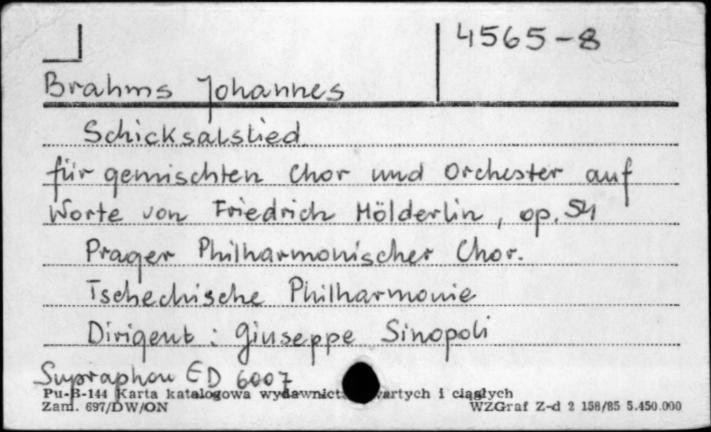 4565-8
Brahms Johannes
Schicksalslied
für gemischten Chor und Orchester auf
Worte von Friedrich Hölderlin, op. 54
Prager Philharmonischer Chor.
Tschechische Philharmonie
Dirigent: Giuseppe Sinopoli
Supraphon ED 6007
Pu-B-144 Karta katalogowa wydawnict wartych i ciągłych
Zam. 697/DW/ON WZGraf Z-d 2 158/85 5.450.000